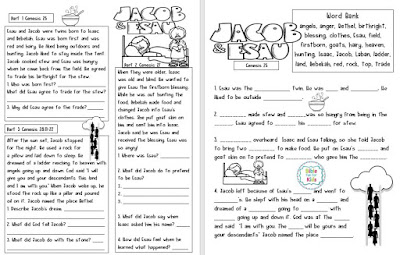 JACOB
& ESAU
Part 1 Genesis 25
Esau and Jacob were twins born to Isaac
and Rebekah. Esau was born first and was
red and hairy. He liked being outdoors and
hunting. Jacob liked to stay inside the tent.
Jacob cooked stew and Esau was hungry
when he came back from the field. He agreed
to trade his birthright for the stew.
1. Who was born first?
2. What did Esau agree to trade for the stew?
3. Why did Esau agree to the trade?
Part 2 Genesis 27
When they were older, Isaac
was old and blind. He wanted to
give Esau the firstborn blessing.
While he was out hunting,
Rebekah made food and
changed Jacob into Esau's
clothes. She put goat skin on
him and sent him into Isaac.
Jacob said he was Esau and
received the blessing. Esau was
so angry.
1. Where was Esau?
2. What did Jacob do to pretend
to be Esau?
3. What did Jacob say when
Isaac asked him his name?
4. How did Esau feel when he
learned what happened?
Part 3 Genesis 28:11-22
After the sun set, Jacob stopped
for the night. He used a rock for
a pillow and laid down to sleep. He
dreamed of a ladder reaching to heaven with
angels going up and down. God said "I will
give you and your descendants this land
and I am with you." When Jacob woke up, he
stood the rock up like a pillar and poured
oil on it. Jacob named the place Bethel.
1. Describe Jacob's dream
2. What did God tell Jacob?
3. What did Jacob do with the stone?
JACOB
& ESAU
Genesis 25
Word Bank
angels, anger, Bethel, birthright,
blessing, clothes, Esau, field,
firstborn, goats, hairy, heaven,
hunting, Isaac, Jacob, Laban, ladder,
land, Rebekah, red, rock, Top, trade
1. Esau was the Twin. He was born and . He
liked to be outside
2. made stew and was so hungry from being in the
. Esau agreed to his for stew
3. overheard Isaac and Esau talking, so she told Jacob
to bring two to make food. Be put on Esau's and
goat skin on to pretend to who gave him the
4. Jacob left because of Esau's and went to
's. He slept with his head on a and
dreamed of a going up to with
going up and down it. God was at the
and said "I am with you. The will be yours and
your descendants" Jacob named the place
Bible
Fun For
Kids